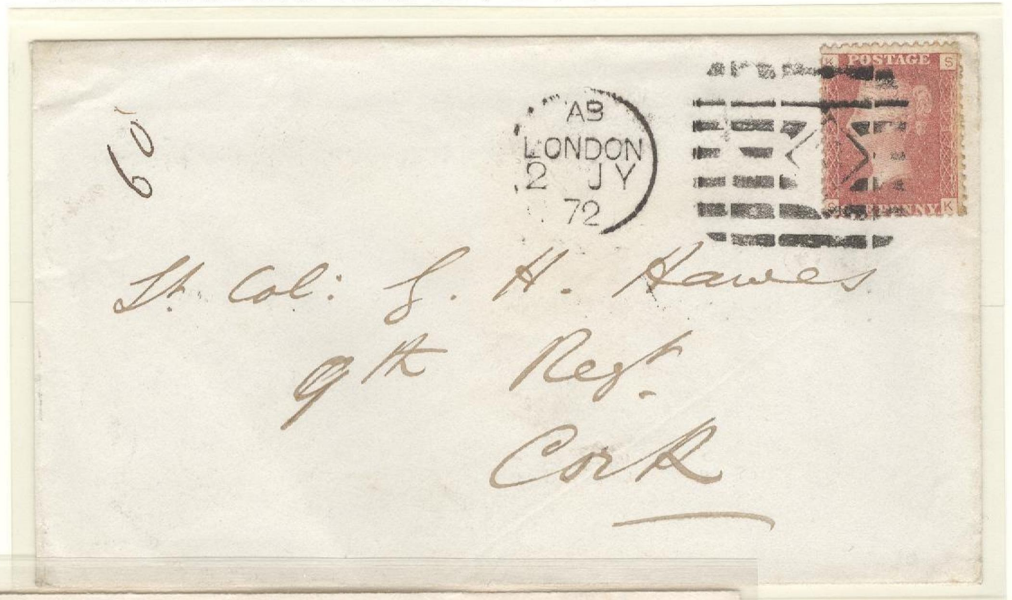 60
AB
LONDON
2 JY
72
K POSTAGE S
PENNY K
Lt. Col: G. H. Hawes
9th Regt.
Cork